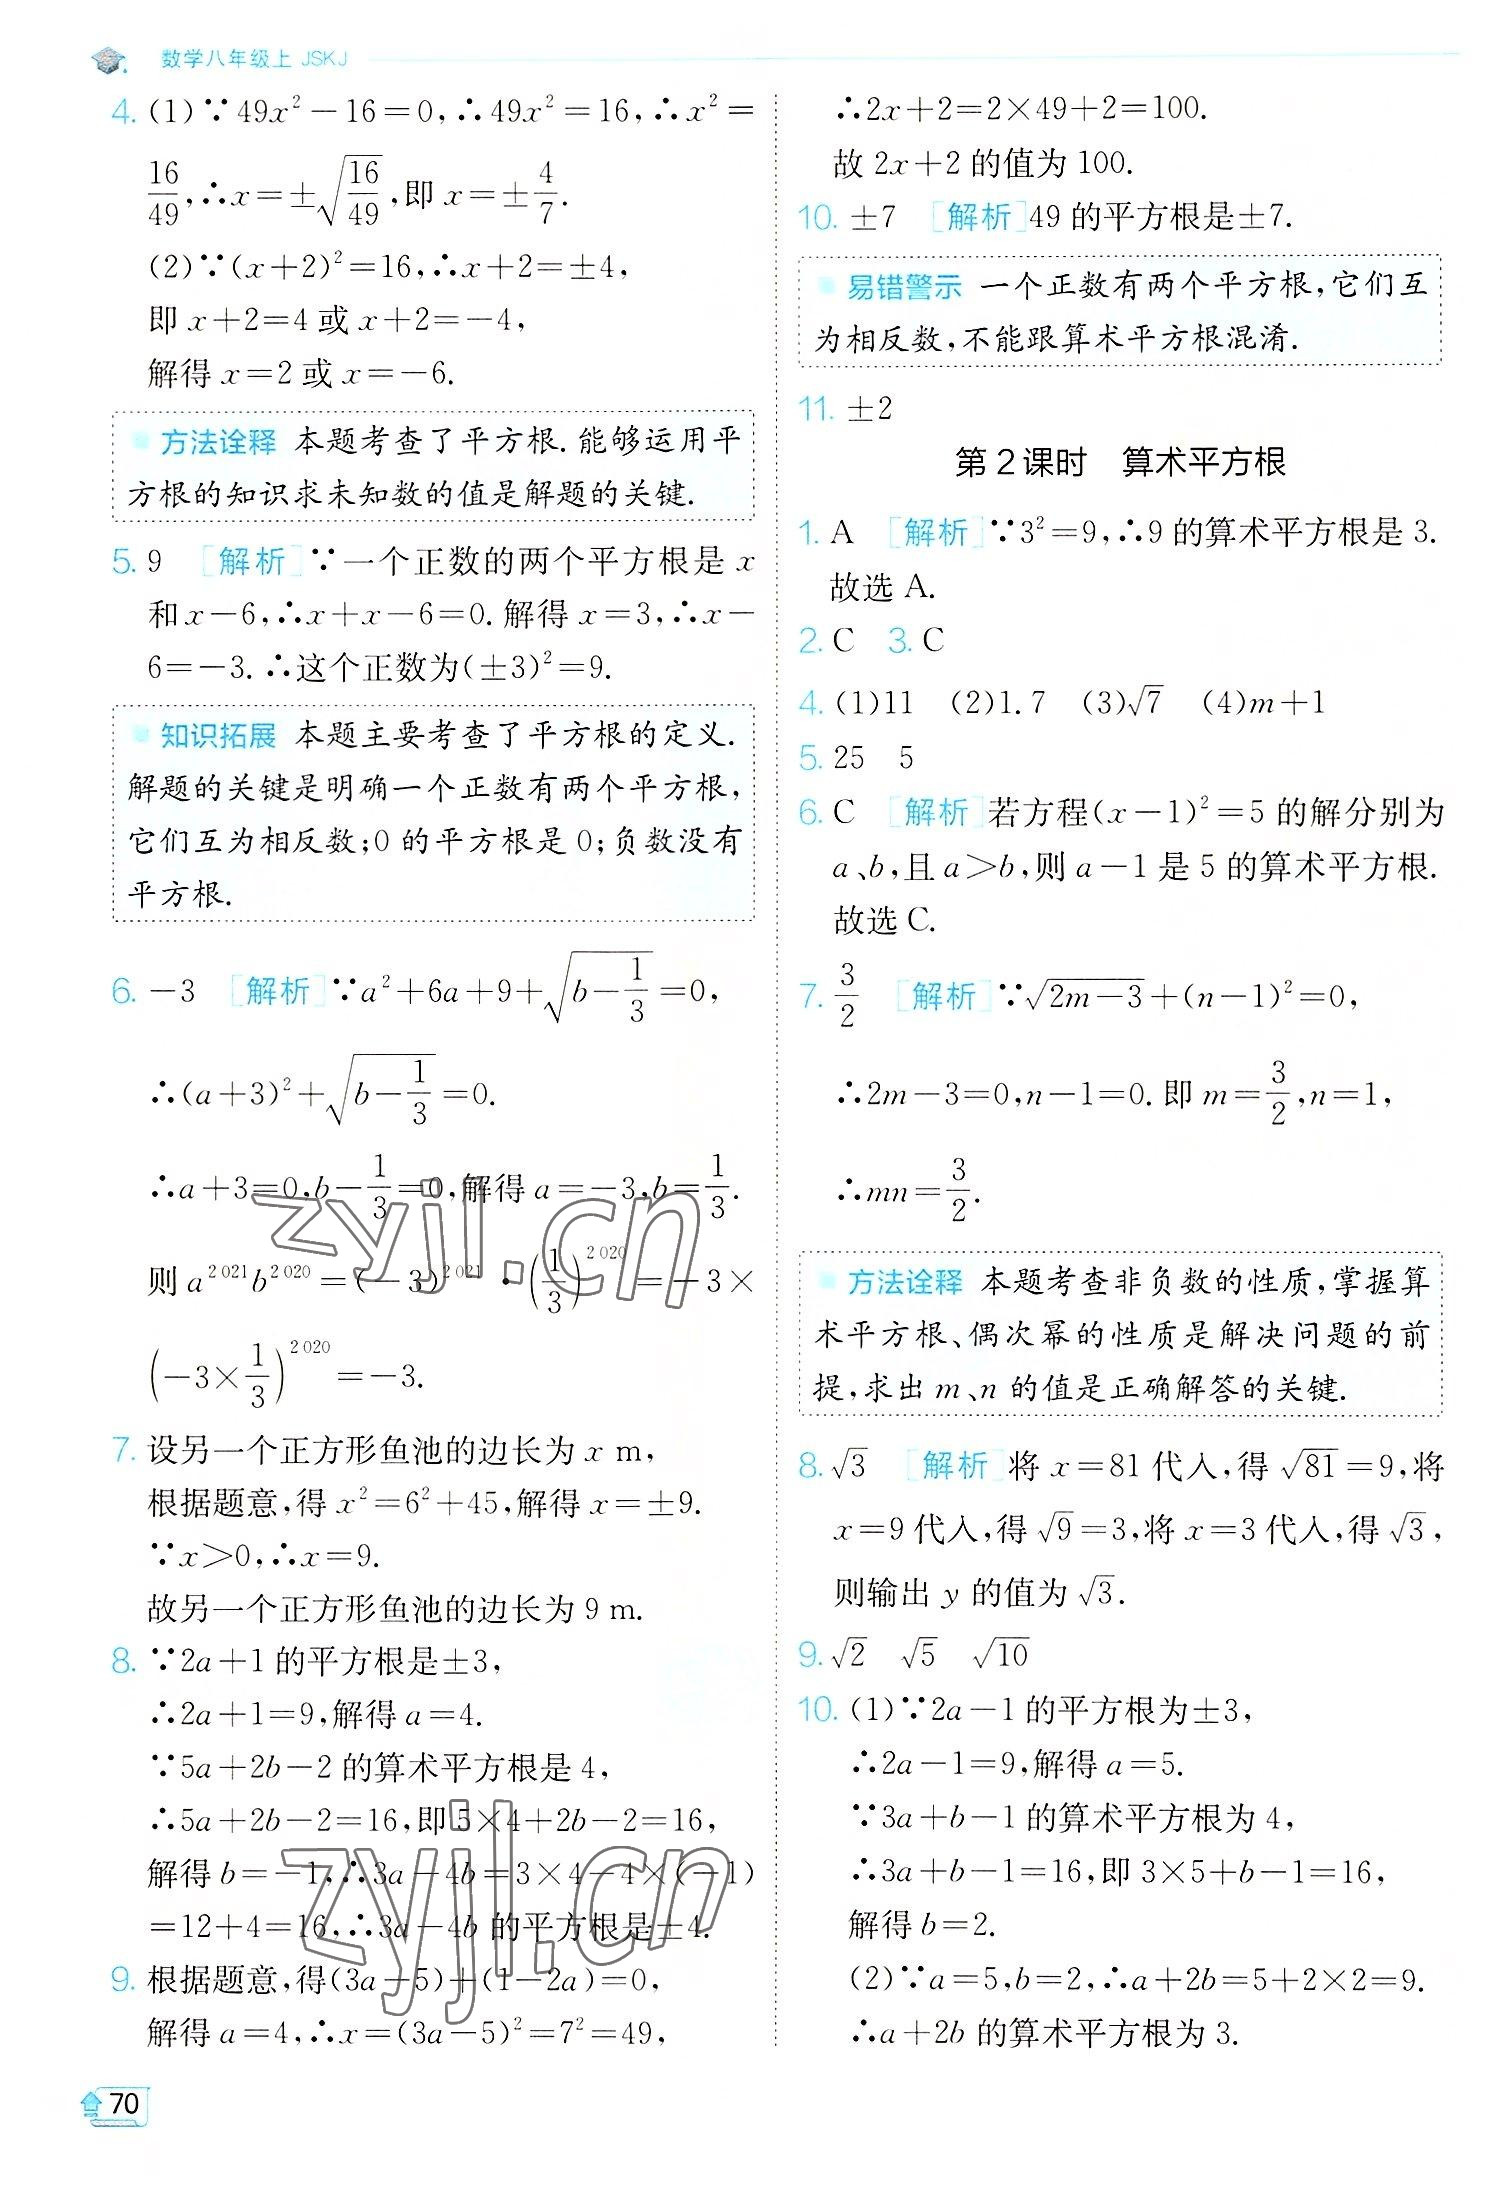 数学八年级上 JSKJ
4. (1)∵49x²－16＝0,∴49x²＝16,∴x²＝
16/49,∴x＝±√(16/49),即 x＝±4/7.
(2)∵(x＋2)²＝16,∴x＋2＝±4,
即 x＋2＝4 或 x＋2＝－4,
解得 x＝2 或 x＝－6.
方法诠释 本题考查了平方根.能够运用平
方根的知识求未知数的值是解题的关键.
5. 9 [解析]∵一个正数的两个平方根是 x
和 x－6,∴x＋x－6＝0.解得 x＝3,∴x－
6＝－3.∴这个正数为(±3)²＝9.
知识拓展 本题主要考查了平方根的定义.
解题的关键是明确一个正数有两个平方根,
它们互为相反数;0 的平方根是 0;负数没有
平方根.
6. －3 [解析]∵a²＋6a＋9＋√(b－1/3)＝0,
∴(a＋3)²＋√(b－1/3)＝0.
∴a＋3＝0,b－1/3＝0,解得 a＝－3,b＝1/3.
则 a²⁰²¹b²⁰²⁰＝(－3)²⁰²¹·(1/3)²⁰²⁰＝－3×
(－3×1/3)²⁰²⁰＝－3.
7. 设另一个正方形鱼池的边长为 x m,
根据题意,得 x²＝6²＋45,解得 x＝±9.
∵x＞0,∴x＝9.
故另一个正方形鱼池的边长为 9 m.
8. ∵2a＋1 的平方根是±3,
∴2a＋1＝9,解得 a＝4.
∵5a＋2b－2 的算术平方根是 4,
∴5a＋2b－2＝16,即 5×4＋2b－2＝16,
解得 b＝－1,∴3a－4b＝3×4－4×(－1)
＝12＋4＝16,∴3a－4b 的平方根是±4.
9. 根据题意,得(3a－5)＋(1－2a)＝0,
解得 a＝4,∴x＝(3a－5)²＝7²＝49,
∴2x＋2＝2×49＋2＝100.
故 2x＋2 的值为 100.
10. ±7 [解析]49 的平方根是±7.
易错警示 一个正数有两个平方根,它们互
为相反数,不能跟算术平方根混淆.
11. ±2
第 2 课时 算术平方根
1. A [解析]∵3²＝9,∴9 的算术平方根是 3.
故选 A.
2. C 3. C
4. (1)11 (2)1.7 (3)√7 (4)m＋1
5. 25 5
6. C [解析]若方程(x－1)²＝5 的解分别为
a、b,且 a＞b,则 a－1 是 5 的算术平方根.
故选 C.
7. 3/2 [解析]∵√(2m－3)＋(n－1)²＝0,
∴2m－3＝0,n－1＝0.即 m＝3/2,n＝1,
∴mn＝3/2.
方法诠释 本题考查非负数的性质,掌握算
术平方根、偶次幂的性质是解决问题的前
提,求出 m、n 的值是正确解答的关键.
8. √3 [解析]将 x＝81 代入,得 √81＝9,将
x＝9 代入,得 √9＝3,将 x＝3 代入,得 √3,
则输出 y 的值为 √3.
9. √2 √5 √10
10. (1)∵2a－1 的平方根为±3,
∴2a－1＝9,解得 a＝5.
∵3a＋b－1 的算术平方根为 4,
∴3a＋b－1＝16,即 3×5＋b－1＝16,
解得 b＝2.
(2)∵a＝5,b＝2,∴a＋2b＝5＋2×2＝9.
∴a＋2b 的算术平方根为 3.
70
zyjl.cn
zyjl.cn